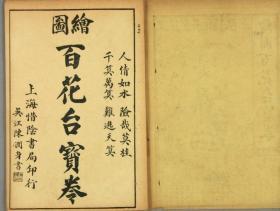 人情如水
千算萬算 難逃天算
繪圖
百花台寶卷
上海惜陰書局印行
吳江陳潤身書